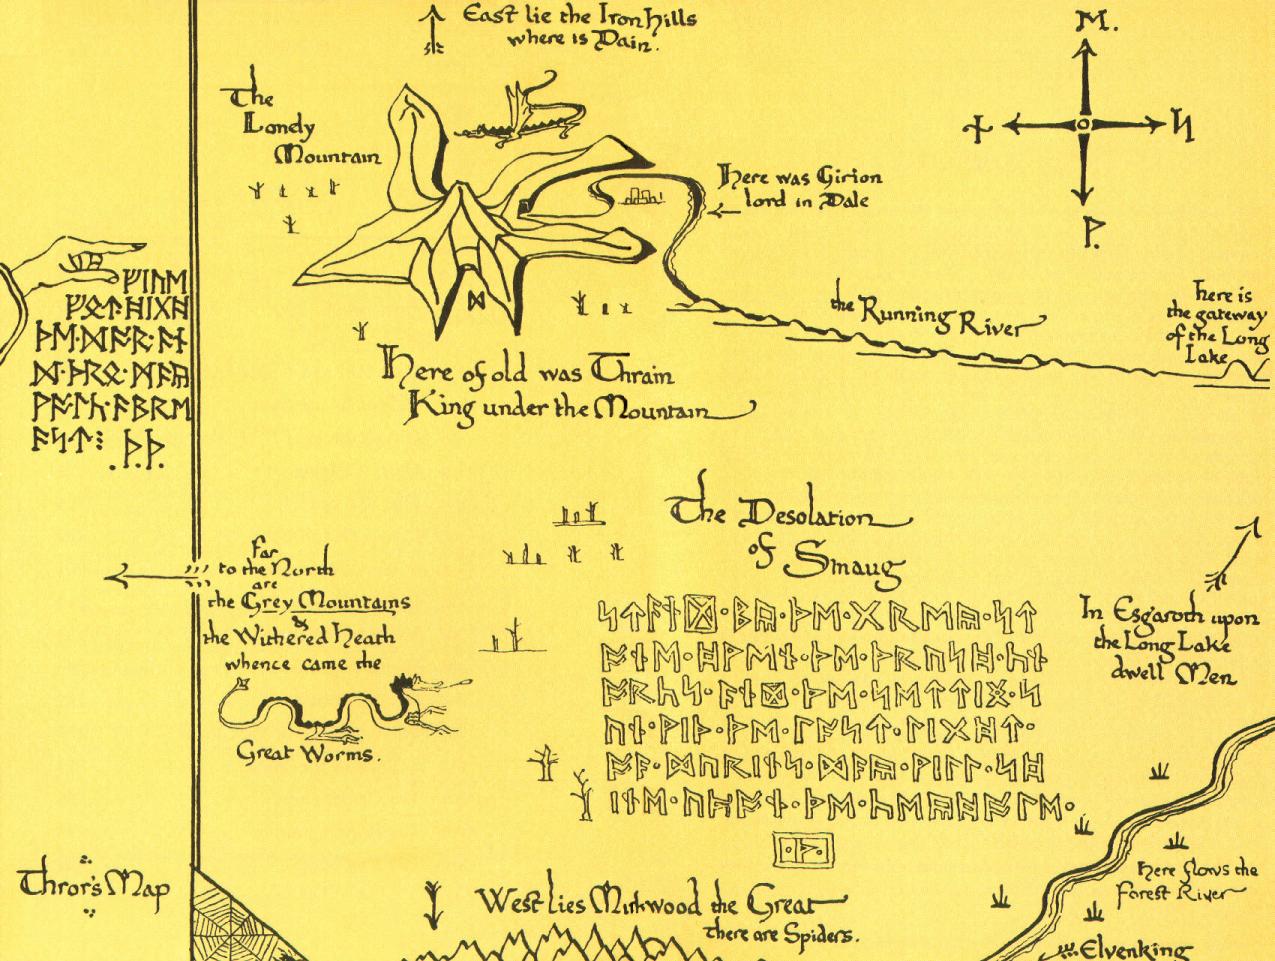 East lie the Iron Hills
where is Dain.
The
Lonely
Mountain
ᛖ.
ᚾ
ᛋ
ᚹ.
Here was Girion
lord in Dale
ᚠᛁᚢᛖ
ᚠᛳᛏ᛫ᚻᛁᚷᚻ
ᚦᛖ᛫ᛞᚩᚱ᛫ᚪᚾ
ᛞ᛫ᚦᚱᛟ᛫ᛗᚪᚣ
ᚹᚩᛚᚳ᛫ᚪᛒᚱᛖ
ᚪᛋᛏ⁝ .ᚦ.ᚦ.
ᛞ
the Running River
Here is
the gateway
of the Long
Lake
Here of old was Thrain
King under the Mountain
The Desolation
of Smaug
Far
to the North
are
the Grey Mountains
&
the Withered Heath
whence came the
Great Worms.
ᛋᛏᚪᚾᛞ᛫ᛒᚣ᛫ᚦᛖ᛫ᚷᚱᛖᚣ᛫ᛋᛏ
ᚩᚾᛖ᛫ᚻᚹᛖᚾ᛫ᚦᛖ᛫ᚦᚱᚢᛋᚻ᛫ᚳᚾ
ᚩᚳᚳᛋ᛫ᚪᚾᛞ᛫ᚦᛖ᛫ᛋᛖᛏᛏᛁᛝ᛫ᛋ
ᚢᚾ᛫ᚹᛁᚦ᛫ᚦᛖ᛫ᛚᚪᛋᛏ᛫ᛚᛁᚷᚻᛏ᛫
ᚩᚠ᛫ᛞᚢᚱᛁᚾᛋ᛫ᛞᚪᚣ᛫ᚹᛁᛚᛚ᛫ᛋᚻ
ᛁᚾᛖ᛫ᚢᛈᚩᚾ᛫ᚦᛖ᛫ᚳᛖᚣᚻᚩᛚᛖ᛫
᛫ᚦ᛫
In Esgaroth upon
the Long Lake
dwell Men
Thror's Map
West lies Mirkwood the Great
there are Spiders.
Here flows the
Forest River
Elvenking